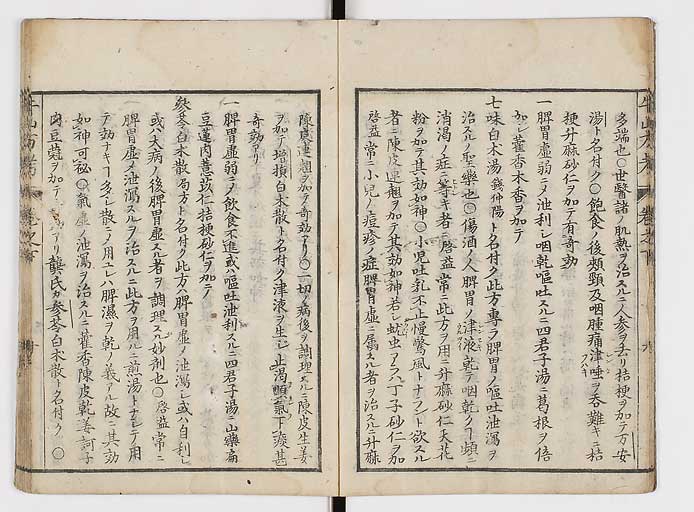 多端也○世醫諸ノ肌熱ヲ治スルニ人参ヲ去リ桔梗ヲ加テ万安
湯ト名付ク○飽食ノ後頬頸及咽腫痛津唾ヲ呑難キニ桔
梗升麻砂仁ヲ加テ有奇効
一脾胃虚弱ニメ泄利し咽乾嘔吐スルニ四君子湯ニ葛根ヲ倍
加し藿香木香ヲ加テ
七味白木湯 錢仲陽 ト名付ク此方專ラ脾胃ノ嘔吐泄瀉ヲ
治スルノ聖藥也○傷酒ノ人脾胃ノ津液乾テ咽乾クヿ頻ニ
消渇ノ症ニ等キ者ニ啓益常ニ此方ヲ用ニ升麻砂仁天花
粉ヲ加テ其効如神○小児吐乳不止慢驚風トナラント欲スル
者ニ陳皮連翹ヲ加テ其効如神若シ蚘虫アラハ丁子砂仁ヲ加
啓益常ニ小児ノ痘疹ノ症脾胃虚ニ属スル者ヲ治スルニ升麻
陳皮連翹ヲ加テ奇効アリ○一切ノ病後ヲ調理スルニ陳皮生姜
ヲ加テ増損白木散ト名付ク津液ヲ生シ止渇順氣下痰甚
奇効アリ
一脾胃虚弱ニメ飲食不進或ハ嘔吐泄利スルニ四君子湯ニ山藥扁
豆蓮肉薏苡仁桔梗砂仁ヲ加テ
参苓白木散 局方ト名付ク此方ハ脾胃虚ノ泄瀉し或ハ自利し
或ハ大病ノ後脾胃虚スル者ヲ調理スル妙剤也○啓益常ニ
脾胃虚ノ泄瀉スルヲ治スルニ此方ヲ用ルニ煎湯トナシテ用
テ効ナキヿ多シ散ニメ用ユレハ脾濕ヲ乾ノ義アル故ニ其効
如神可秘○氣虚ノ泄瀉ヲ治スルニ藿香陳皮乾姜訶子
肉豆蔻ヲ加テアリ龔氏カ参苓白木散ト名付ク○
牛山方考 巻之下